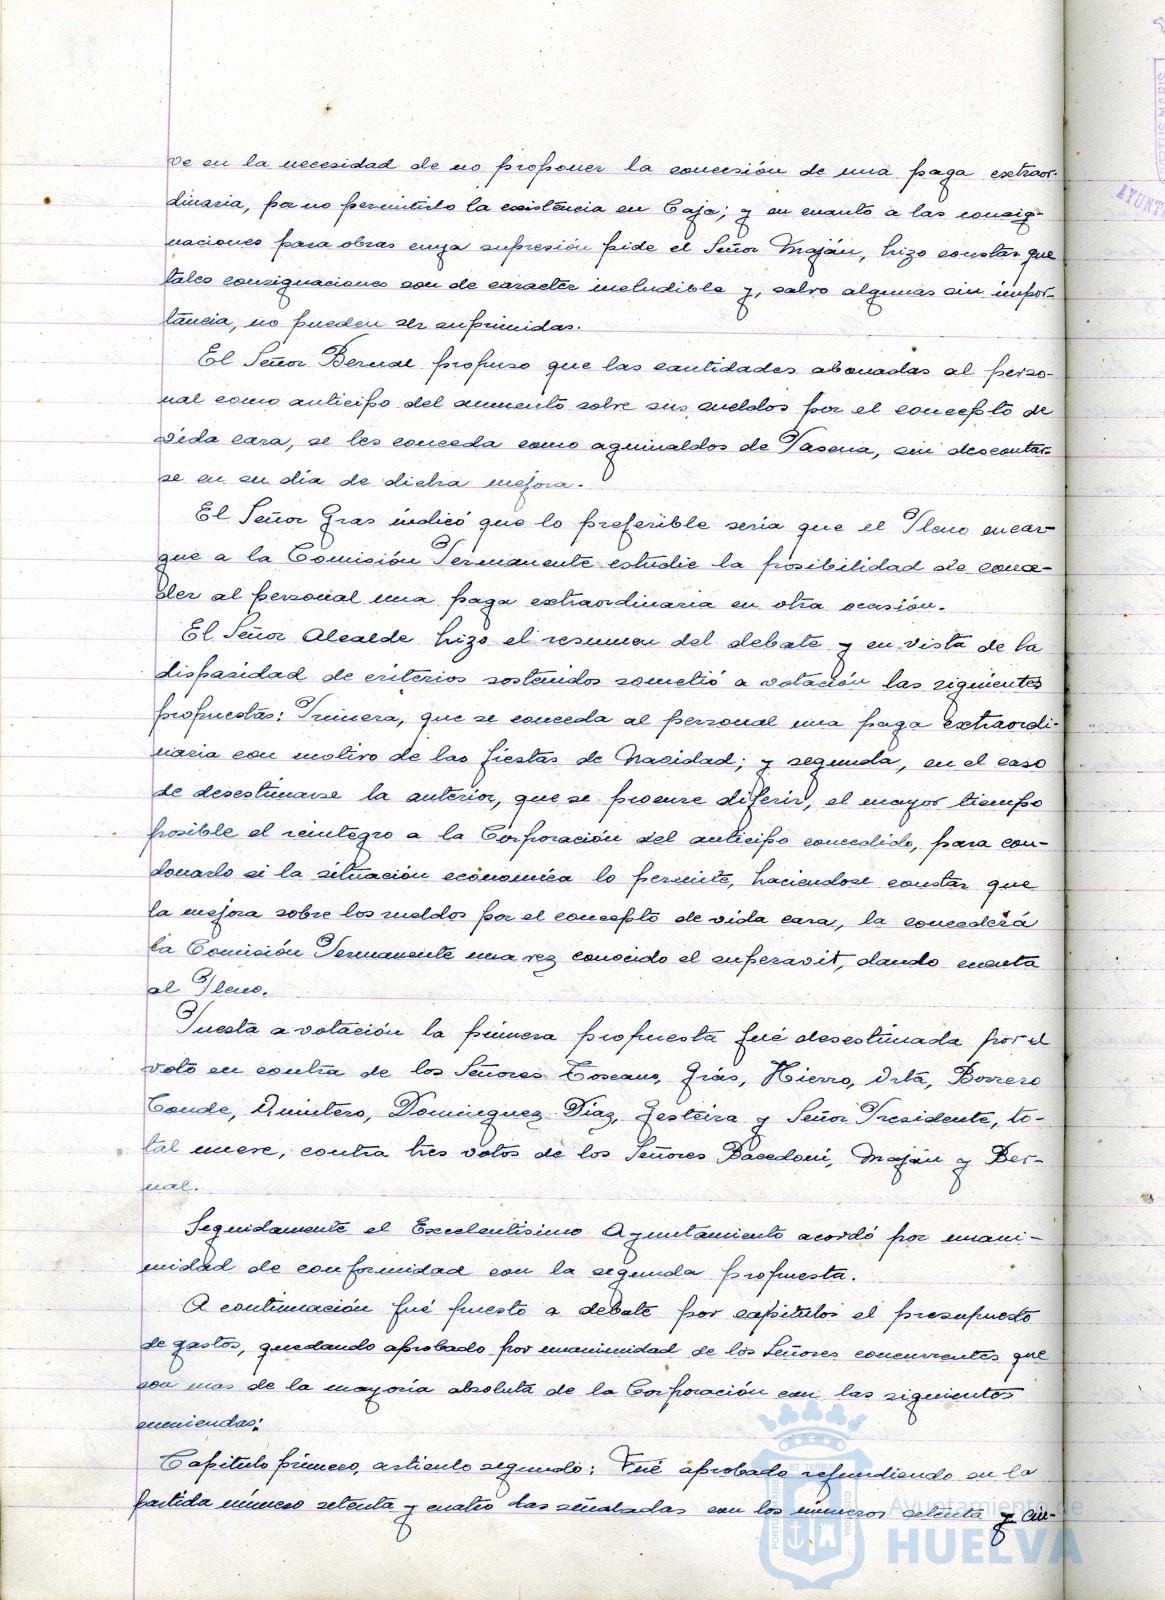 ve en la necesidad de no proponer la concesión de una paga extraor-
dinaria, por no permitirlo la existencia en Caja; y en cuanto a las consig-
naciones para obras cuya supresión pide el Señor Maján, hizo constar que
tales consignaciones son de caracter ineludible y, salvo algunas sin impor-
tancia, no pueden ser suprimidas.
El Señor Bernal propuso que las cantidades abonadas al perso-
nal como anticipo del aumento sobre sus sueldos por el concepto de
vida cara, se les conceda como aguinaldos de Pascua, sin descontar-
se en su dia de dicha mejora.
El Señor Gras indicó que lo preferible seria que el Pleno encar-
gue a la Comisión Permanente estudie la posibilidad de conce-
der al personal una paga extraordinaria en otra ocasión.
El Señor Alcalde hizo el resumen del debate y en vista de la
disparidad de criterios sostenidos sometió a votación las siguientes
propuestas: Primera, que se conceda al personal una paga extraordi-
naria con motivo de las fiestas de Navidad; y segunda, en el caso
de desestimarse la anterior, que se procure diferir, el mayor tiempo
posible el reintegro a la Corporación del anticipo concedido, para con-
donarlo si la situación económica lo permite, haciendose constar que
la mejora sobre los sueldos por el concepto de vida cara, la concederá
la Comisión Permanente una vez conocido el superavit, dando cuenta
al Pleno.
Puesta a votación la primera propuesta fué desestimada por el
voto en contra de los Señores Toscano, Grás, Hierro, Orta, Borrero
Conde, Quintero, Dominguez Díaz, Gesteira y Señor Presidente, to-
tal nueve, contra tres votos de los Señores Bacedoni, Maján y Ber-
nal.
Seguidamente el Excelentisimo Ayuntamiento acordó por unani-
midad de conformidad con la segunda propuesta.
A continuación fué puesto a debate por capitulos el presupuesto
de gastos, quedando aprobado por unanimidad de los Señores concurrentes que
son mas de la mayoría absoluta de la Corporación con las siguientes
enmiendas:
Capitulo primero, articulo segundo: Fué aprobado refundiendo en la
partida número setenta y cuatro las señaladas con los números setenta y cin-
Ayuntamiento de
HUELVA